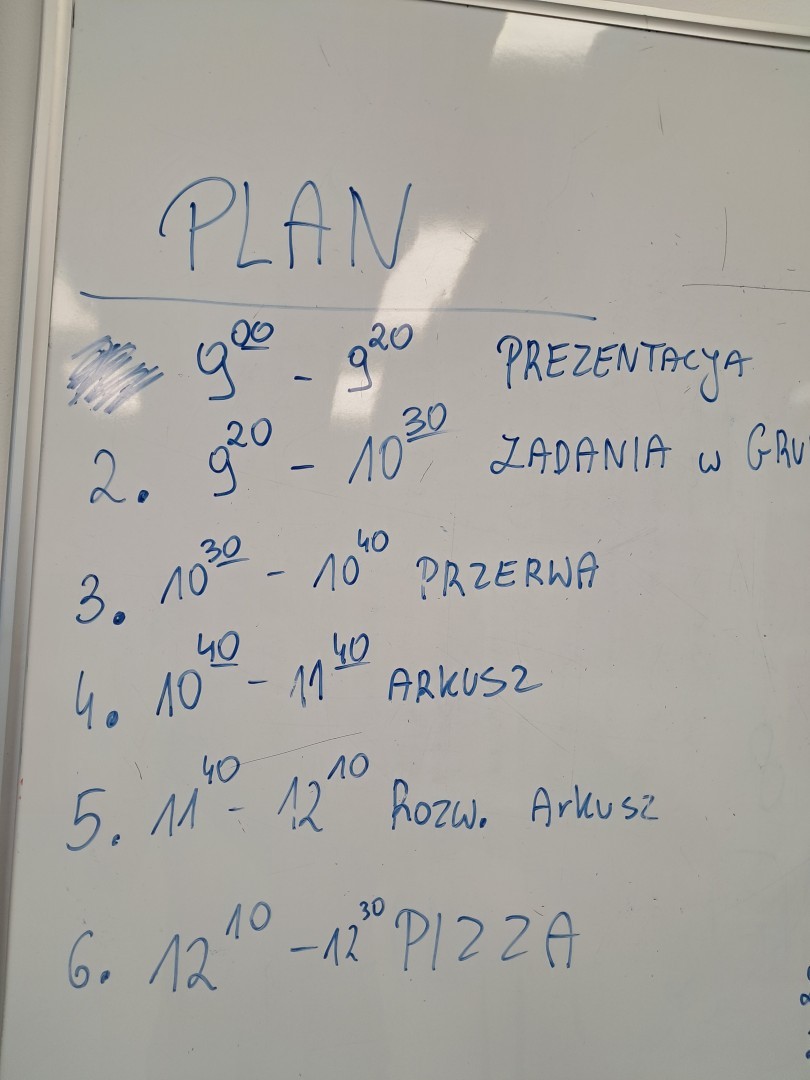 PLAN
9⁰⁰ - 9²⁰ PREZENTACJA
2. 9²⁰ - 10³⁰ ZADANIA w
3. 10³⁰ - 10⁴⁰ PRZERWA
4. 10⁴⁰ - 11⁴⁰ ARKUSZ
5. 11⁴⁰ - 12¹⁰ Rozw. Arkusz
6. 12¹⁰ - 12³⁰ PIZZA